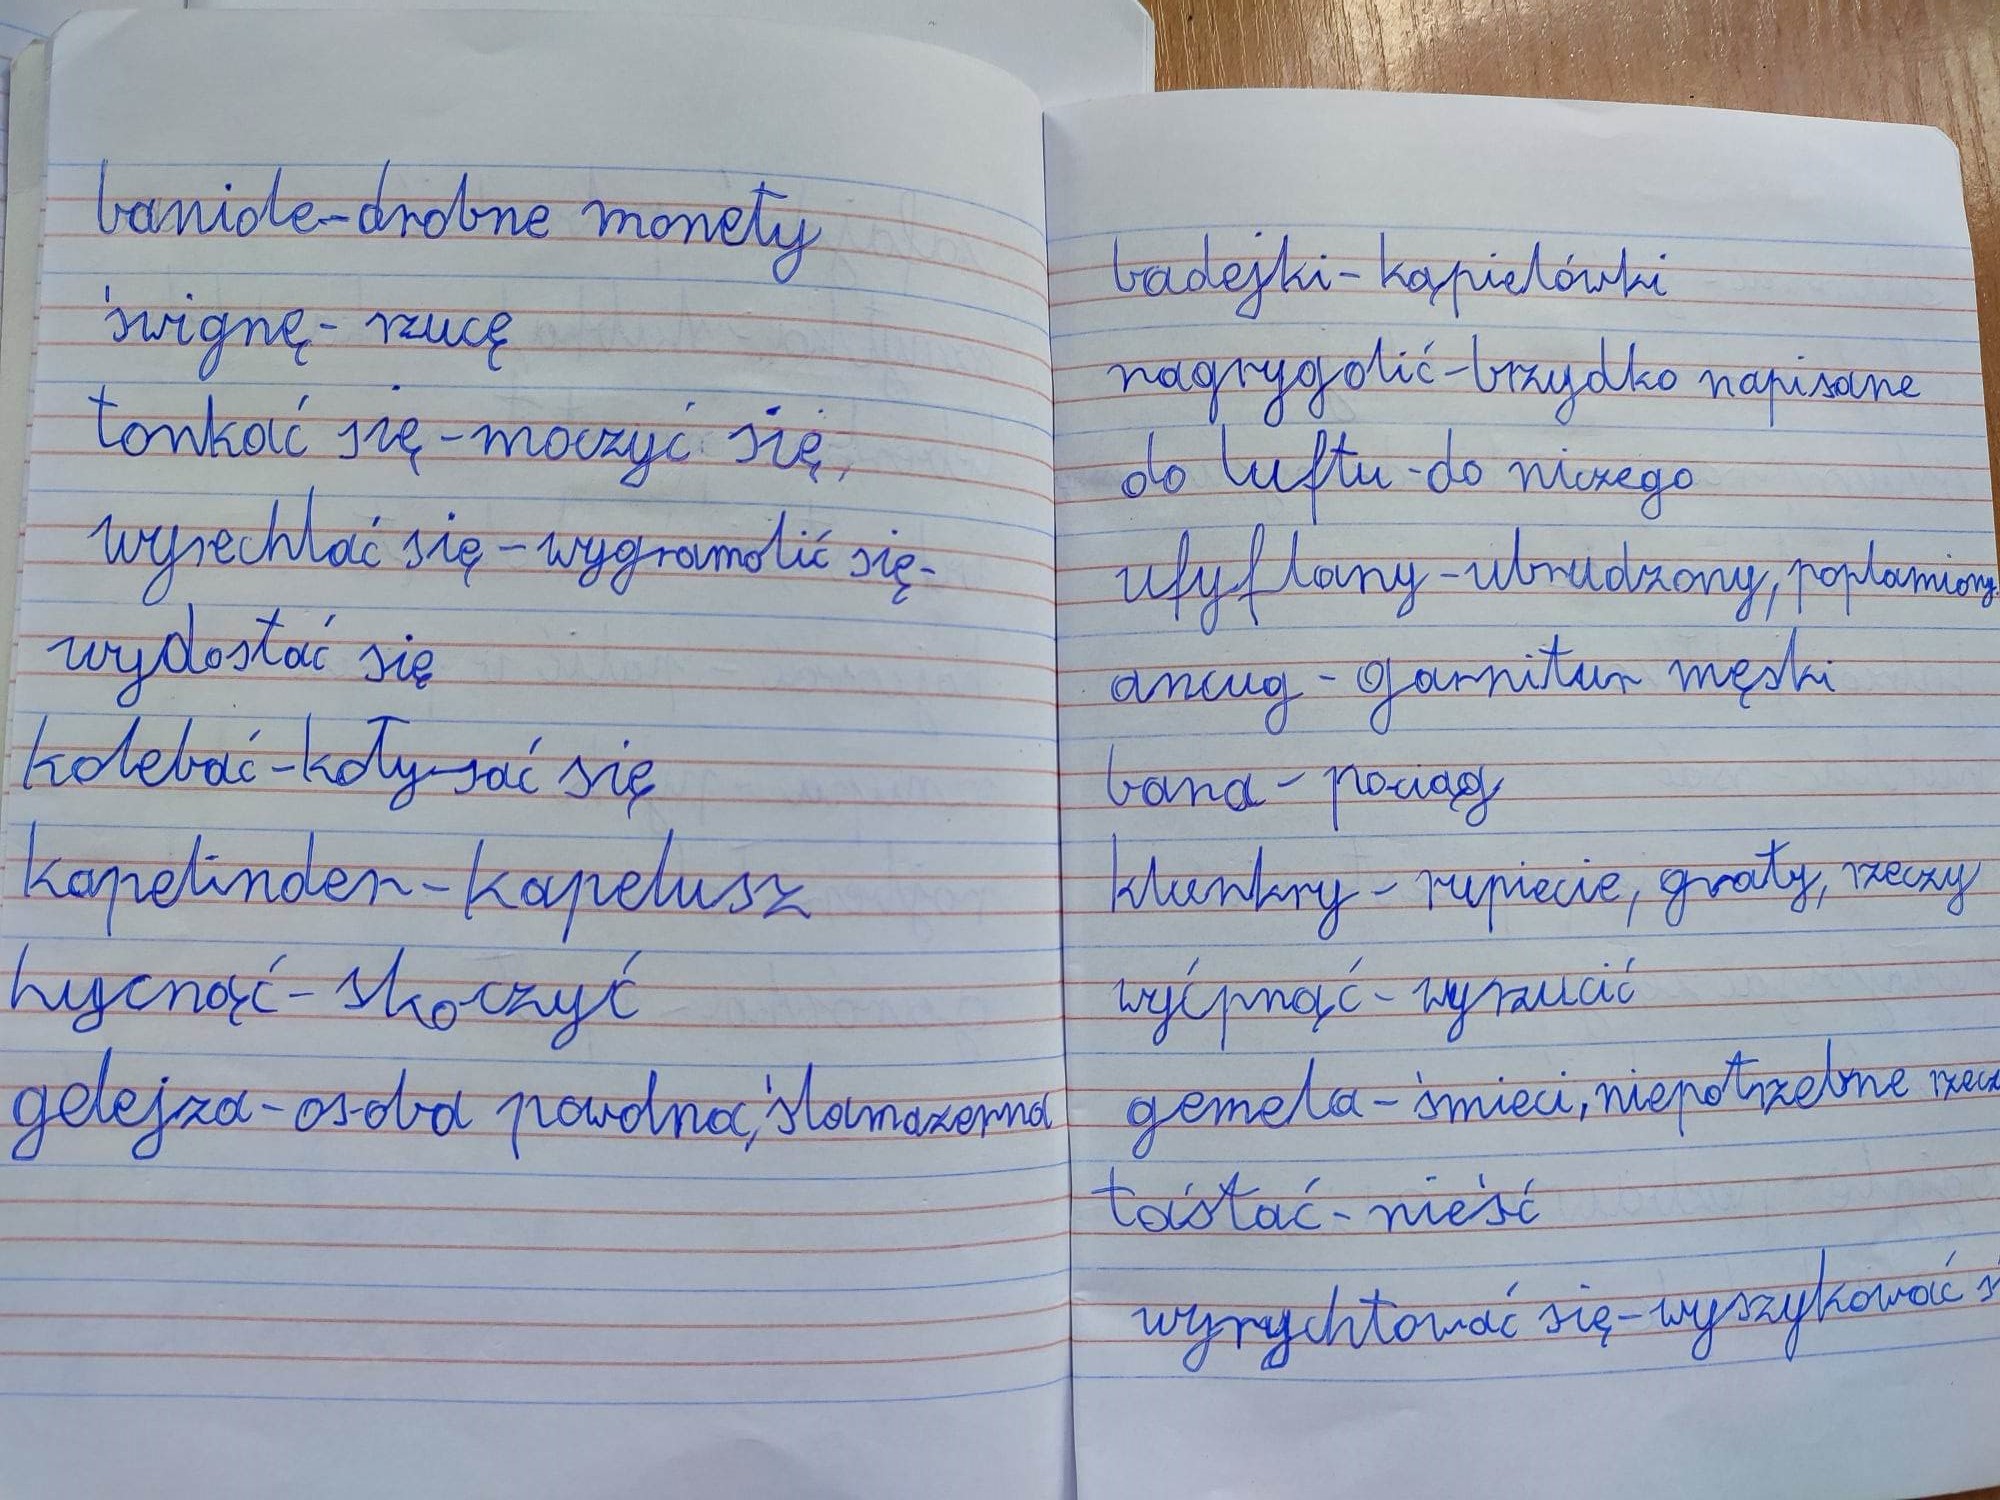 baniole-drobne monety
śwignę- rzucę
tonkać się-moczyć się,
wyrechlać się-wygramolić się-
wydostać się
kolebać-kołysać się
kapelinder-kapelusz
hycnąć-skoczyć
gelejza-osoba powolna, ślamazerna
badejki-kąpielówki
nagrygolić-brzydko napisane
do luftu-do niczego
ufyflany-ubrudzony, poplamiony
ancug-garnitur męski
bana-pociąg
klunkry-rupiecie, graty, rzeczy
wyćpnąć-wyrzucić
gemela-śmieci, niepotrzebne rzecz
taśtać-nieść
wyrychtować się-wyszykować s